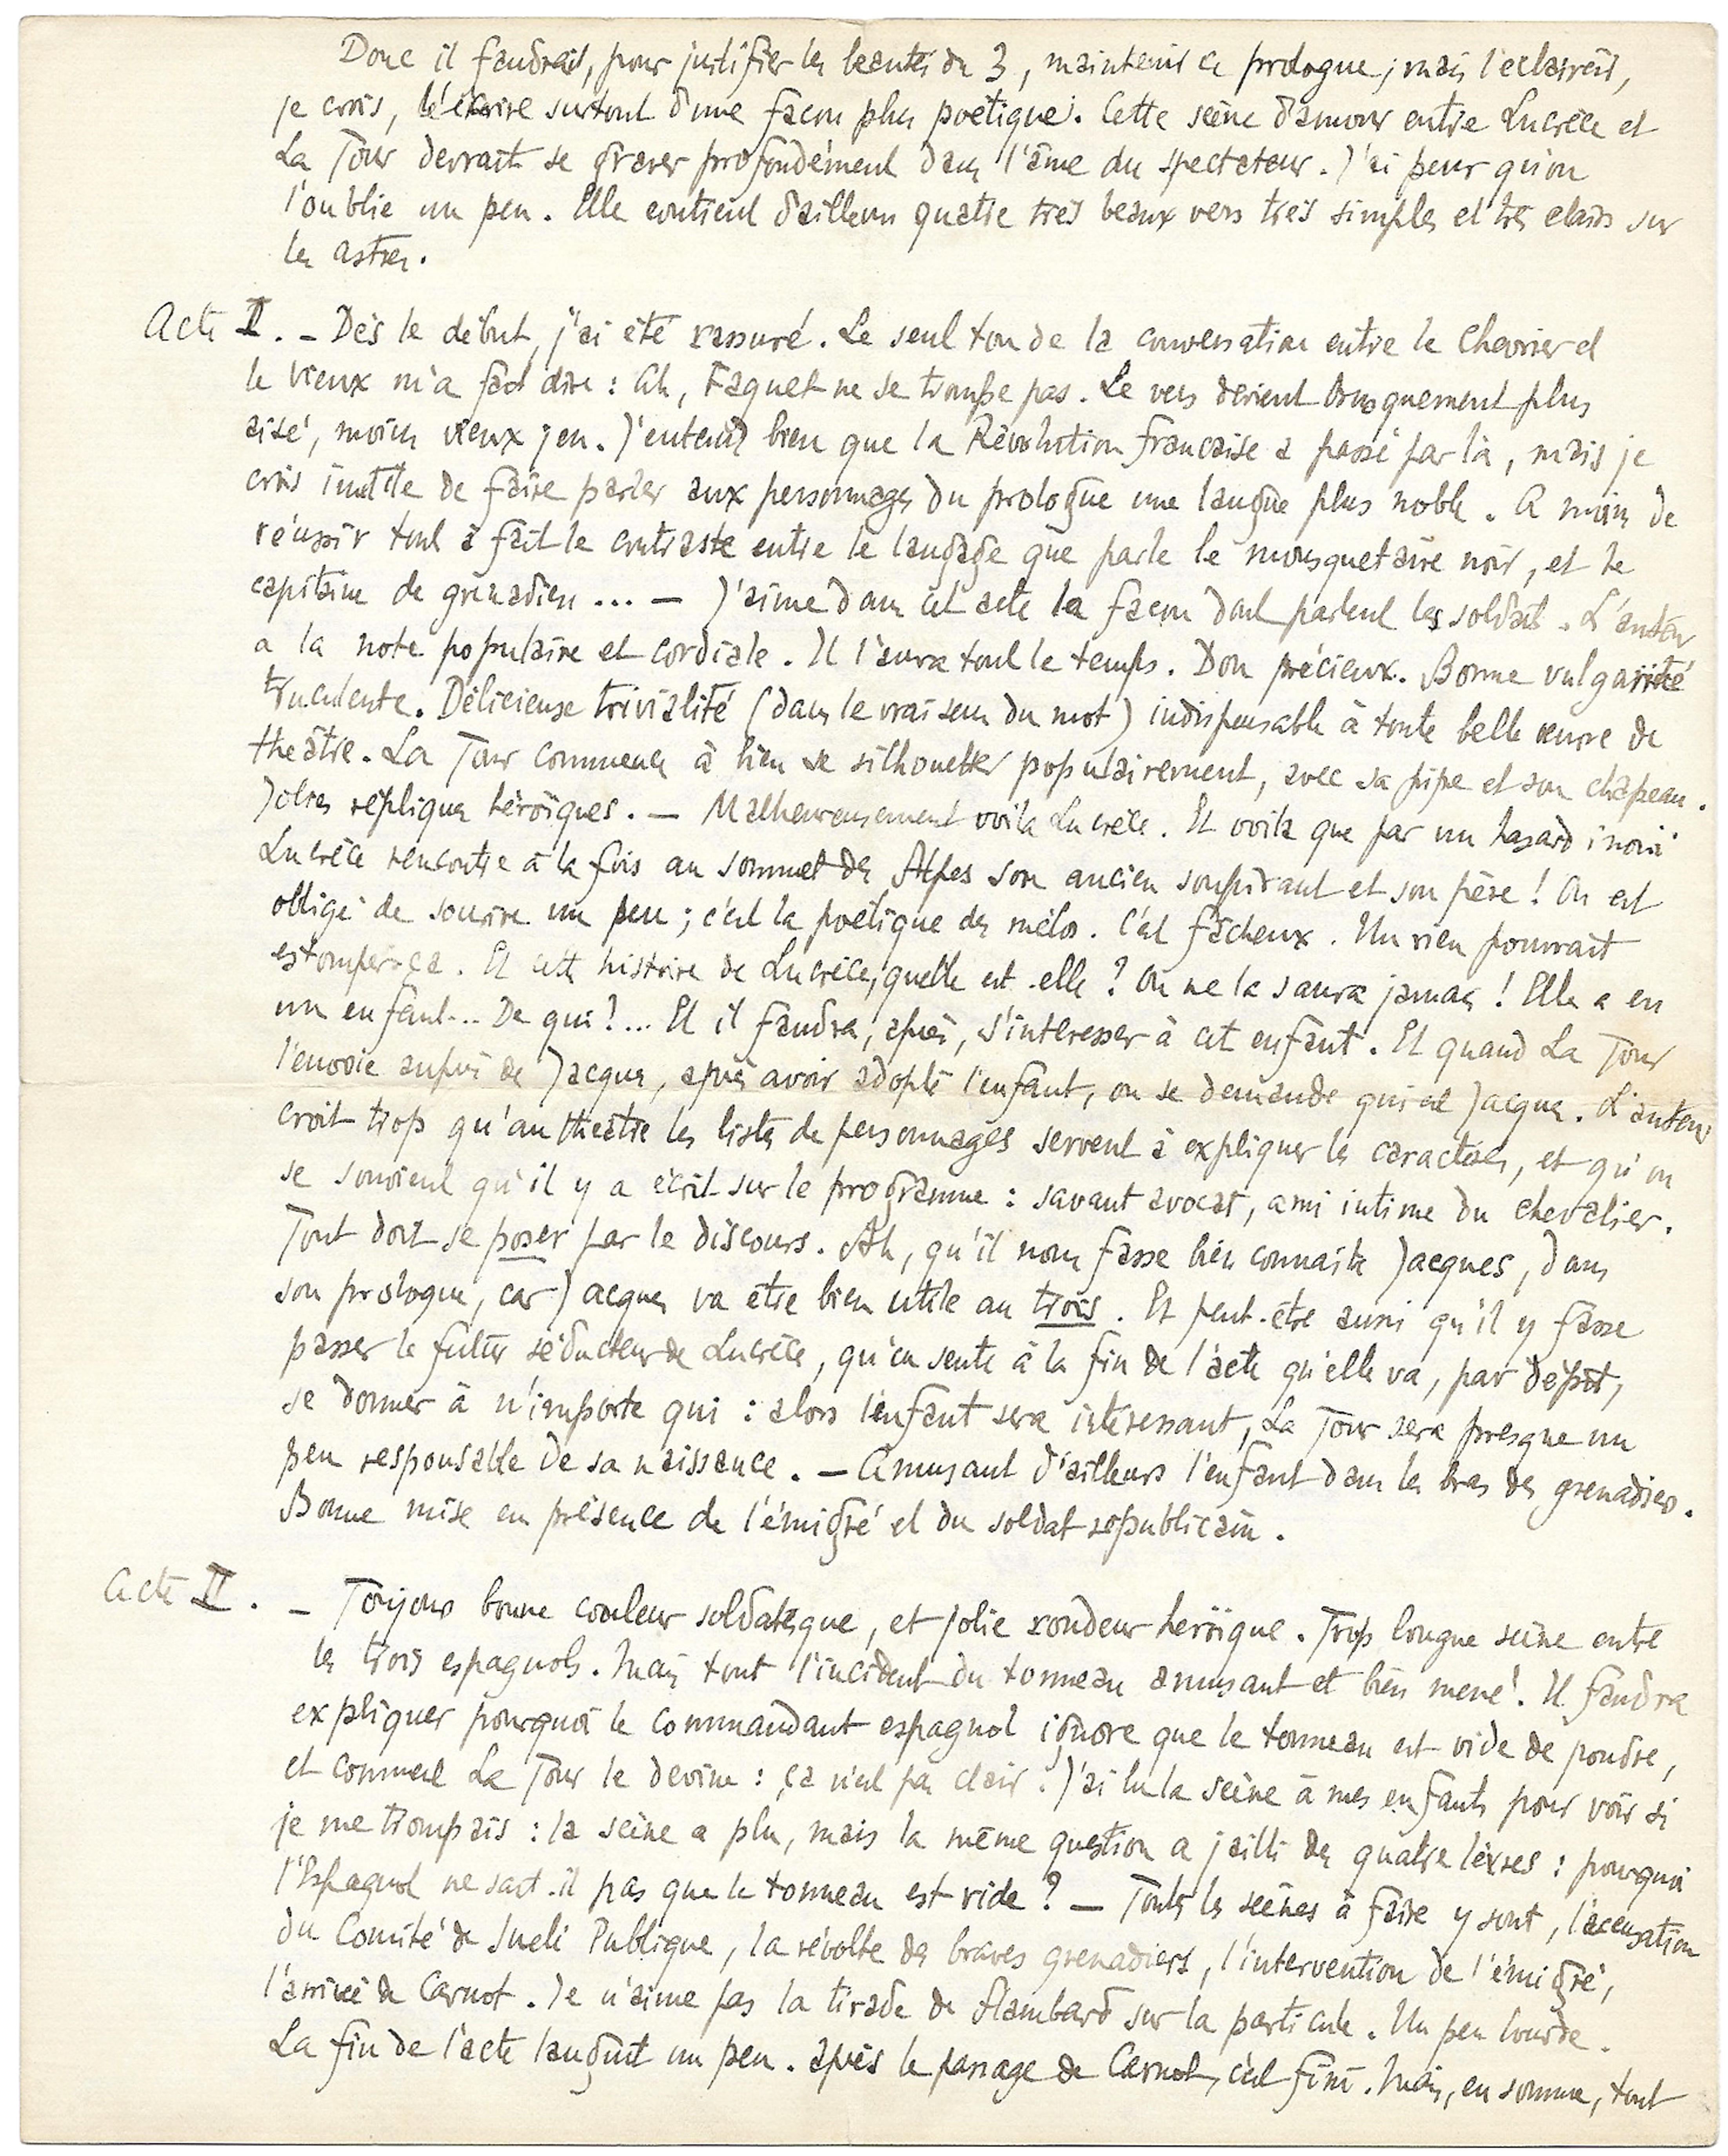 Donc il faudrait, pour justifier les beautés du 3, maintenir ce prologue ; mais l'éclaircir,
je crois, l'écrire surtout d'une façon plus poétique. Cette scène d'amour entre Lucrèce et
La Tour devrait se graver profondément dans l'âme du spectateur. J'ai peur qu'on
l'oublie un peu. Elle contient d'ailleurs quatre très beaux vers très simples et très clairs sur
les astres.
Acte I. — Dès le début, j'ai été rassuré. Le seul ton de la conversation entre le Chevrier et
le vieux m'a fait dire : Ah, Faguet ne se trompe pas. Le vers devient brusquement plus
aisé, moins vieux jeu. J'entends bien que la Révolution française a passé par là, mais je
crois inutile de faire parler aux personnages du prologue une langue plus noble. A moins de
réussir tout à fait le contraste entre le langage que parle le mousquetaire noir, et le
capitaine de grenadiers ... — J'aime dans cet acte la façon dont parlent les soldats. L'auteur
a la note populaire et cordiale. Il l'aura tout le temps. Don précieux. Bonne vulgarité
truculente. Délicieuse trivialité (dans le vrai sens du mot) indispensable à toute belle œuvre de
théâtre. La Tour commence à bien se silhouetter populairement, avec sa pipe et son chapeau.
Jolies répliques héroïques. — Malheureusement voilà Lucrèce. Et voilà que par un hasard inouï
Lucrèce rencontre à la fois au sommet des Alpes son ancien soupirant et son père ! On est
obligé de sourire un peu ; c'est la poétique des mélos. C'est fâcheux. Un rien pourrait
estomper ça. Et cette histoire de Lucrèce, quelle est-elle ? On ne la saura jamais ! Elle a eu
un enfant... De qui ?... Et il faudra, après, s'intéresser à cet enfant. Et quand La Tour
l'envoie auprès de Jacques, après avoir adopté l'enfant, on se demande qui est Jacques. L'auteur
croit trop qu'au théâtre les listes de personnages servent à expliquer les caractères, et qu'on
se souvient qu'il y a écrit sur le programme : savant avocat, ami intime du chevalier.
Tout doit se poser par le discours. Ah, qu'il nous fasse bien connaître Jacques, dans
son prologue, car Jacques va être bien utile au trois. Et peut-être aussi qu'il y fasse
passer le futur séducteur de Lucrèce, qu'on sente à la fin de l'acte qu'elle va, par dépit,
se donner à n'importe qui : alors l'enfant sera intéressant, La Tour sera presque un
peu responsable de sa naissance. — Amusant d'ailleurs l'enfant dans les bras des grenadiers.
Bonne mise en présence de l'émigré et du soldat républicain.
Acte II. — Toujours bonne couleur soldatesque, et jolie rondeur héroïque. Trop longue scène entre
les trois espagnols. Mais tout l'incident du tonneau amusant et bien mené. Il faudra
expliquer pourquoi le commandant espagnol ignore que le tonneau est vide de poudre,
et comment La Tour le devine : ça n'est pas clair. J'ai lu la scène à mes enfants pour voir si
je me trompais : la scène a plu, mais la même question a jailli des quatre lèvres : pourquoi
l'Espagnol ne sait-il pas que le tonneau est vide ? — Toutes les scènes à faire y sont, l'accusation
du Comité de Salut Publique, la révolte des braves grenadiers, l'intervention de l'émigré,
l'arrivée de Carnot. Je n'aime pas la tirade de Flambard sur la particule. Un peu lourde.
La fin de l'acte languit un peu. après le passage de Carnot, c'est fini. Mais, en somme, tout